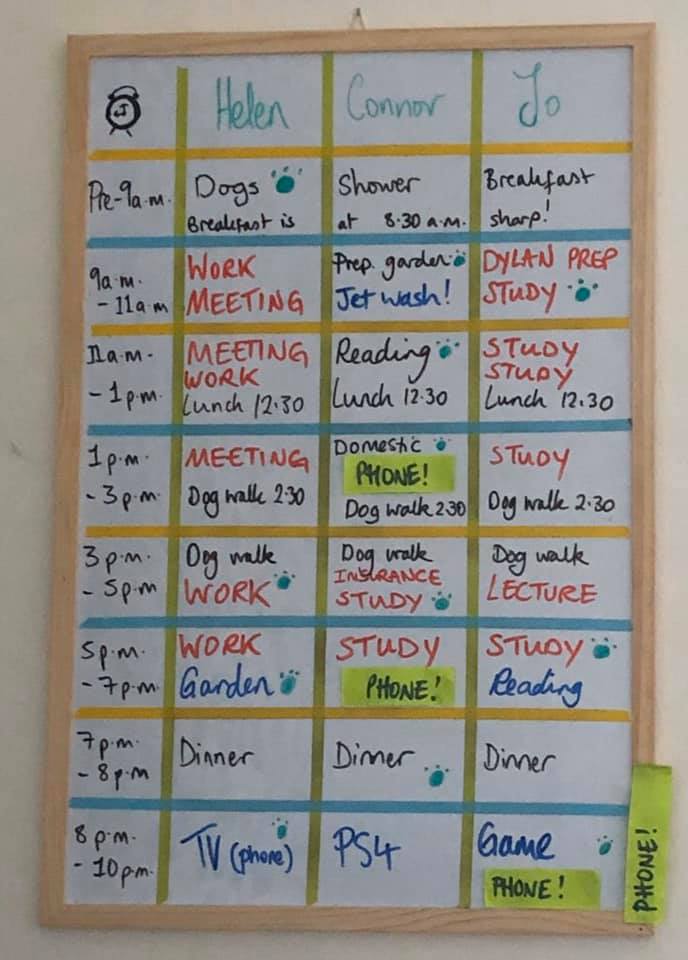 Helen Connor Jo
Pre-9a.m. Dogs Shower Breakfast
Breakfast is at 8.30 a.m. sharp!
9a.m. WORK Prep. garden DYLAN PREP
- 11am MEETING Jet wash! STUDY
11a.m. MEETING Reading STUDY
WORK STUDY
- 1p.m. Lunch 12.30 Lunch 12.30 Lunch 12.30
1p.m. MEETING Domestic STUDY
PHONE!
- 3p.m. Dog walk 2.30 Dog walk 2.30 Dog walk 2.30
3p.m. Dog walk Dog walk Dog walk
INSURANCE
- 5pm WORK STUDY LECTURE
5p.m. WORK STUDY STUDY
- 7p.m. Garden PHONE! Reading
7p.m.
- 8p.m Dinner Dinner Dinner
8p.m. TV (phone) PS4 Game
- 10p.m. PHONE!
PHONE!